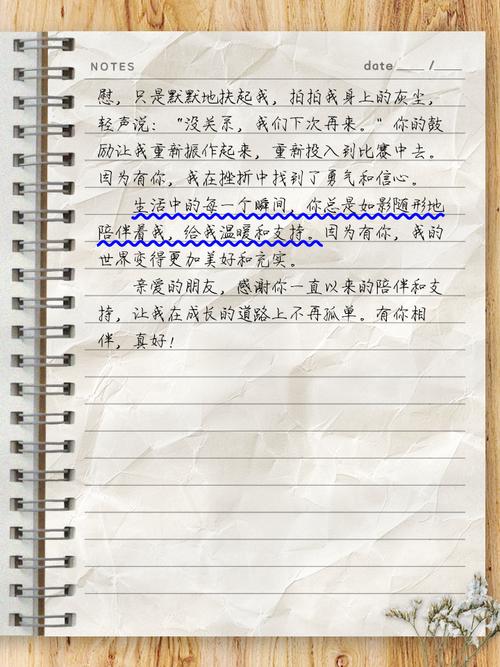 NOTES
date ____ / ____
慰，只是默默地扶起我，拍拍我身上的灰尘，
轻声说：“没关系，我们下次再来。”你的鼓
励让我重新振作起来，重新投入到比赛中去。
因为有你，我在挫折中找到了勇气和信心。
生活中的每一个瞬间，你总是如影随形地
陪伴着我，给我温暖和支持。因为有你，我的
世界变得更加美好和充实。
亲爱的朋友，感谢你一直以来的陪伴和支
持，让我在成长的道路上不再孤单。有你相
伴，真好！